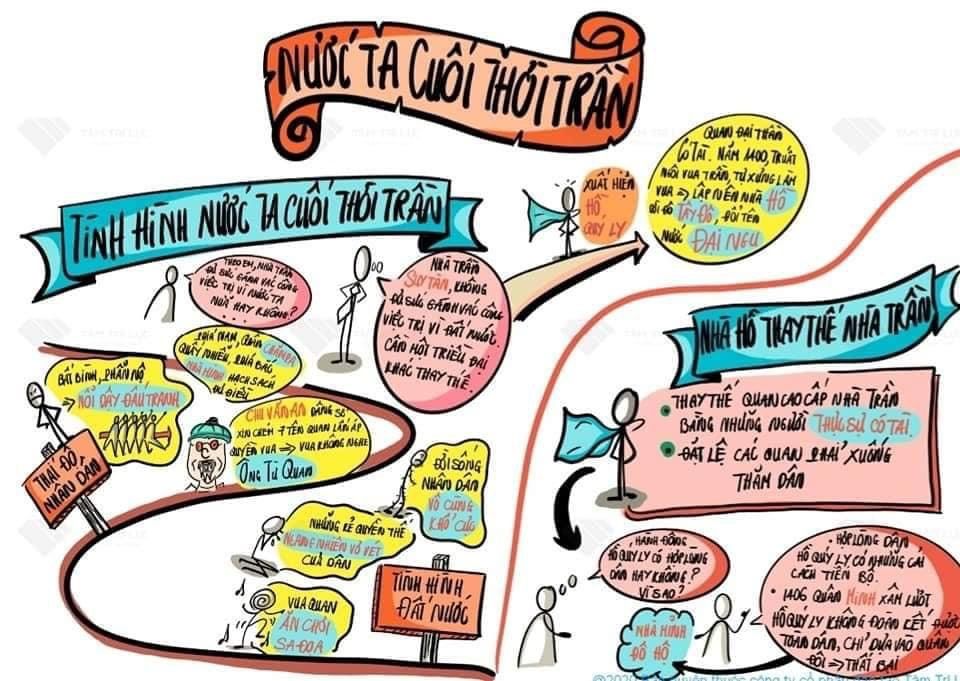 NƯỚC TA CUỐI THỜI TRẦN
TÂM TRÍ LỰC
TÌNH HÌNH NƯỚC TA CUỐI THỜI TRẦN
THEO EM, NHÀ TRẦN
ĐỦ SỨC GÁNH VÁC CÔNG
VIỆC TRỊ VÌ NƯỚC TA
NỮA HAY KHÔNG?
NHÀ TRẦN
SUY TÀN, KHÔNG
ĐỦ SỨC GÁNH VÁC CÔNG
VIỆC TRỊ VÌ ĐẤT NƯỚC
CẦN MỘT TRIỀU ĐẠI
KHÁC THAY THẾ.
XUẤT HIỆN
HỒ
QUÝ LY
QUAN ĐẠI THẦN
CÓ TÀI. NĂM 1400, TRUẤT
NGÔI VUA TRẦN, TỰ XƯNG LÀM
VUA => LẬP NÊN NHÀ HỒ
DỜI ĐÔ TÂY ĐÔ, ĐỔI TÊN
NƯỚC ĐẠI NGU
PHÍA NAM, QUÂN CHĂMPA
QUẤY NHIỄU, PHÍA BẮC
NHÀ MINH HẠCH SÁCH
ĐỦ ĐIỀU
BẤT BÌNH, PHẪN NỘ
NỔI DẬY ĐẤU TRANH
THÁI ĐỘ
NHÂN DÂN
CHU VĂN AN DÂNG SỚ
XIN CHÉM 7 TÊN QUAN LẤN ÁP
QUYỀN VUA => VUA KHÔNG NGHE
ÔNG TỪ QUAN
ĐỜI SỐNG
NHÂN DÂN
VÔ CÙNG
KHỔ CỰC
NHỮNG KẺ QUYỀN THẾ
NGANG NHIÊN VƠ VÉT
CỦA DÂN
VUA QUAN
ĂN CHƠI
SA ĐỌA
TÌNH HÌNH
ĐẤT NƯỚC
NHÀ HỒ THAY THẾ NHÀ TRẦN
• THAY THẾ QUAN CAO CẤP NHÀ TRẦN
BẰNG NHỮNG NGƯỜI THỰC SỰ CÓ TÀI.
• ĐẶT LỆ CÁC QUAN PHẢI XUỐNG
THĂM DÂN
HÀNH ĐỘNG
HỒ QUÝ LY CÓ HỢP LÒNG
DÂN HAY KHÔNG?
VÌ SAO?
• HỢP LÒNG DÂN
HỒ QUÝ LY CÓ NHỮNG CẢI
CÁCH TIẾN BỘ.
• 1406 QUÂN MINH XÂM LƯỢC
HỒ QUÝ LY KHÔNG ĐOÀN KẾT ĐƯỢC
TOÀN DÂN, CHỈ DỰA VÀO QUÂN
ĐỘI => THẤT BẠI
NHÀ MINH
ĐÔ HỘ